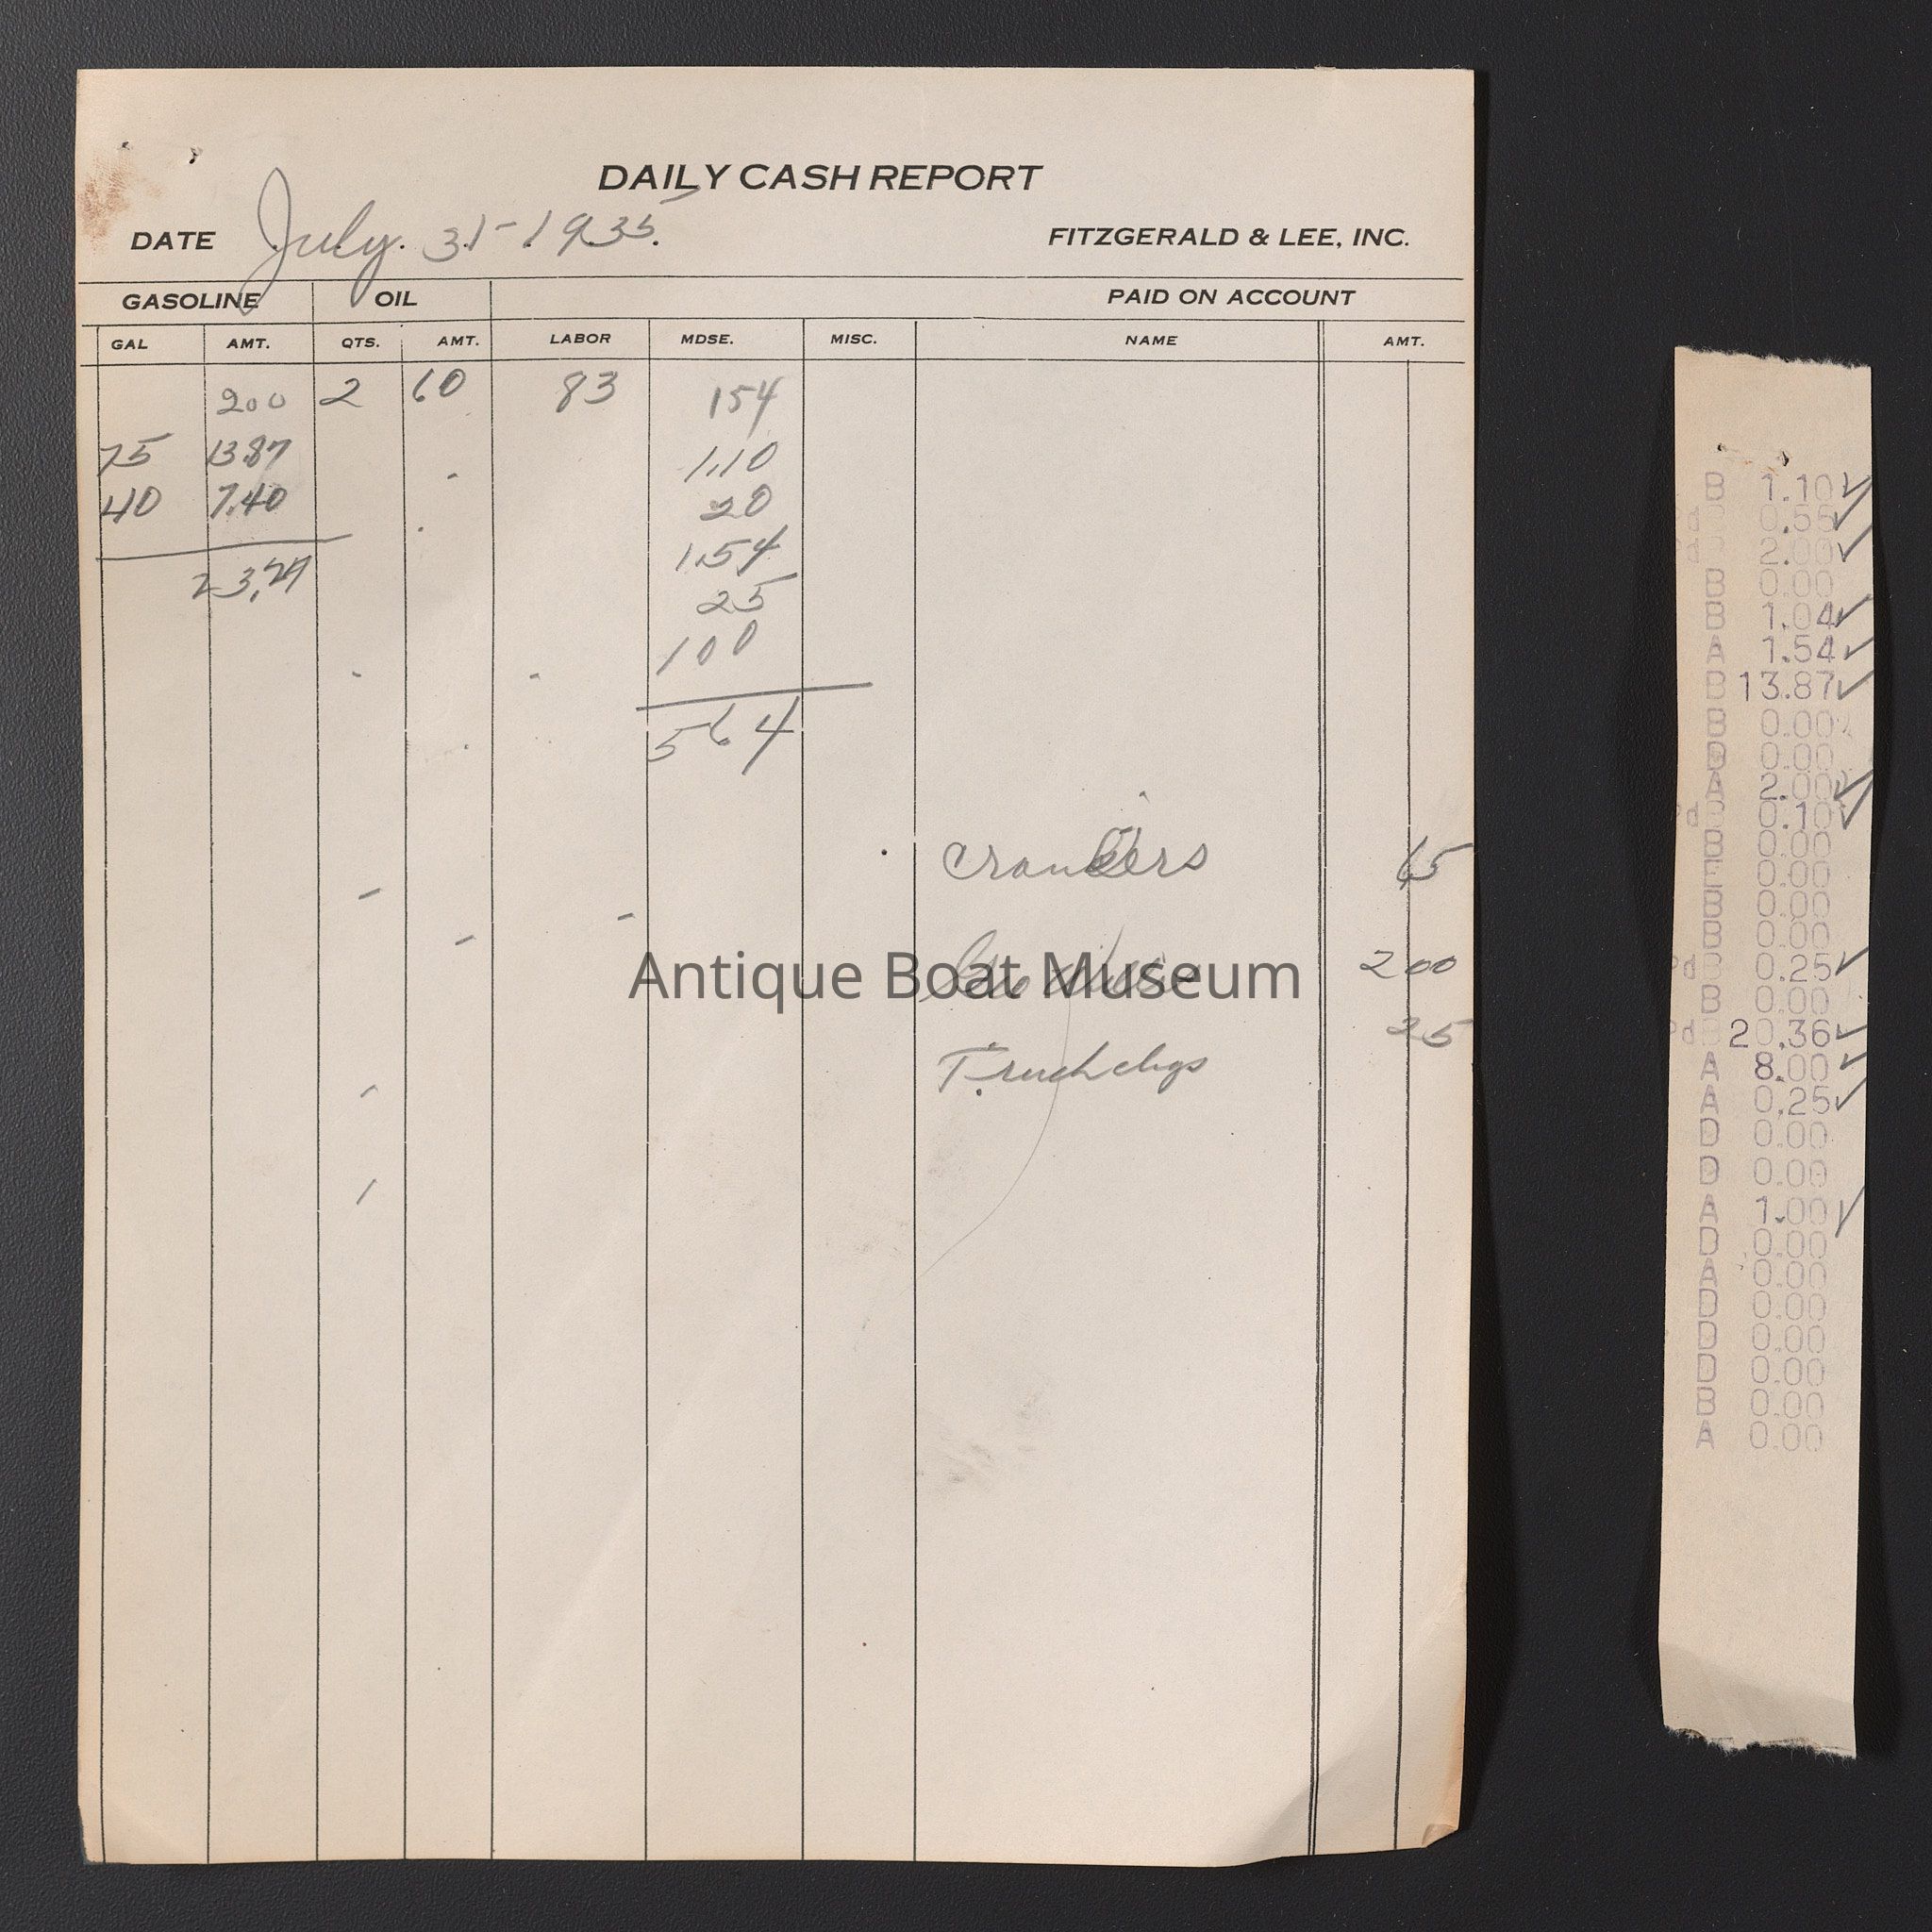 DAILY CASH REPORT
DATE July. 31-1935.
FITZGERALD & LEE, INC.
GASOLINE OIL PAID ON ACCOUNT
GAL AMT. QTS. AMT. LABOR MDSE. MISC. NAME AMT.
200 2 60 83 154
75 13.87 1.10
40 7.40 20
1.54
23,27 25
100
564
65
200
Antique Boat Museum
25
Truck chgs
B 1.10
d 0.55
d 2.00
B 0.00
B 1.04
A 1.54
B 13.87
B 0.00
D 0.00
A 2.00
d 0.10
B 0.00
E 0.00
B 0.00
B 0.00
Pd 0.25
B 0.00
Pd 20.36
A 8.00
A 0.25
D 0.00
D 0.00
A 1.00
D 0.00
A 0.00
D 0.00
D 0.00
D 0.00
B 0.00
A 0.00